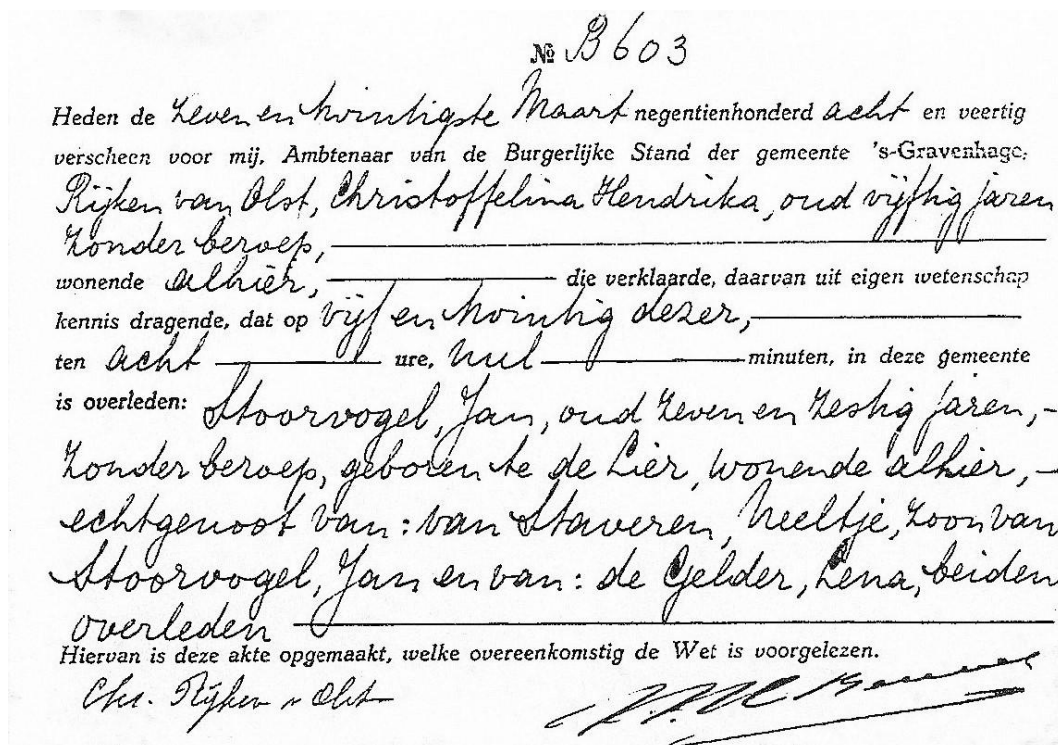 № B 603
Heden de zeven en twintigste Maart negentienhonderd acht en veertig
verscheen voor mij, Ambtenaar van de Burgerlijke Stand der gemeente 's-Gravenhage:
Rijken van Olst, Christoffelina Hendrika, oud vijftig jaren
zonder beroep,
wonende alhier, die verklaarde, daarvan uit eigen wetenschap
kennis dragende, dat op vijf en twintig dezer,
ten acht ure, nul minuten, in deze gemeente
is overleden: Stoorvogel, Jan, oud zeven en zestig jaren,
zonder beroep, geboren te de Lier, wonende alhier,
echtgenoot van: van Staveren, Neeltje, zoon van
Stoorvogel, Jan en van: de Gelder, Lena, beiden
overleden
Hiervan is deze akte opgemaakt, welke overeenkomstig de Wet is voorgelezen.
Chr. Rijken v Olst